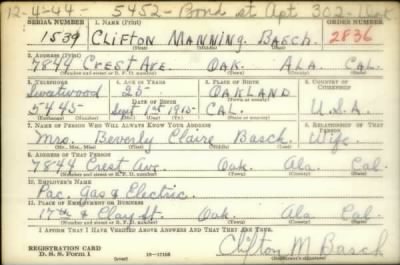 12-4-44- 5452- Bond st Apt. 302-
SERIAL NUMBER 1. NAME (Print) ORDER NUMBER
1539 CLIFTON MANNING BASCH 2836
(First) (Middle) (Last)
2. ADDRESS (Print)
7844 CREST AVE. OAK. ALA. CAL.
(Number and street or R. F. D. number) (Town) (County) (State)
3. TELEPHONE 4. AGE IN YEARS 5. PLACE OF BIRTH 6. COUNTRY OF CITIZENSHIP
Sweetwood 25 OAKLAND
DATE OF BIRTH
5445 Sept 15 1915 CAL. U.S.A.
7. NAME OF PERSON WHO WILL ALWAYS KNOW YOUR ADDRESS 8. RELATIONSHIP OF THAT PERSON
Mrs. Beverly Claire Basch Wife
(Mr., Mrs., Miss) (First) (Middle) (Last)
9. ADDRESS OF THAT PERSON
7844 Crest Ave Oak Ala Cal
(Number and street or R. F. D. number) (Town) (County) (State)
10. EMPLOYER'S NAME
Pac. Gas & Electric.
11. PLACE OF EMPLOYMENT OR BUSINESS
17th & Clay St. Oak Ala Cal
(Number and street or R. F. D. number) (Town) (County) (State)
I AFFIRM THAT I HAVE VERIFIED ABOVE ANSWERS AND THAT THEY ARE TRUE.
REGISTRATION CARD
D. S. S. Form 1 (over) Clifton M Basch
(Registrant's signature)